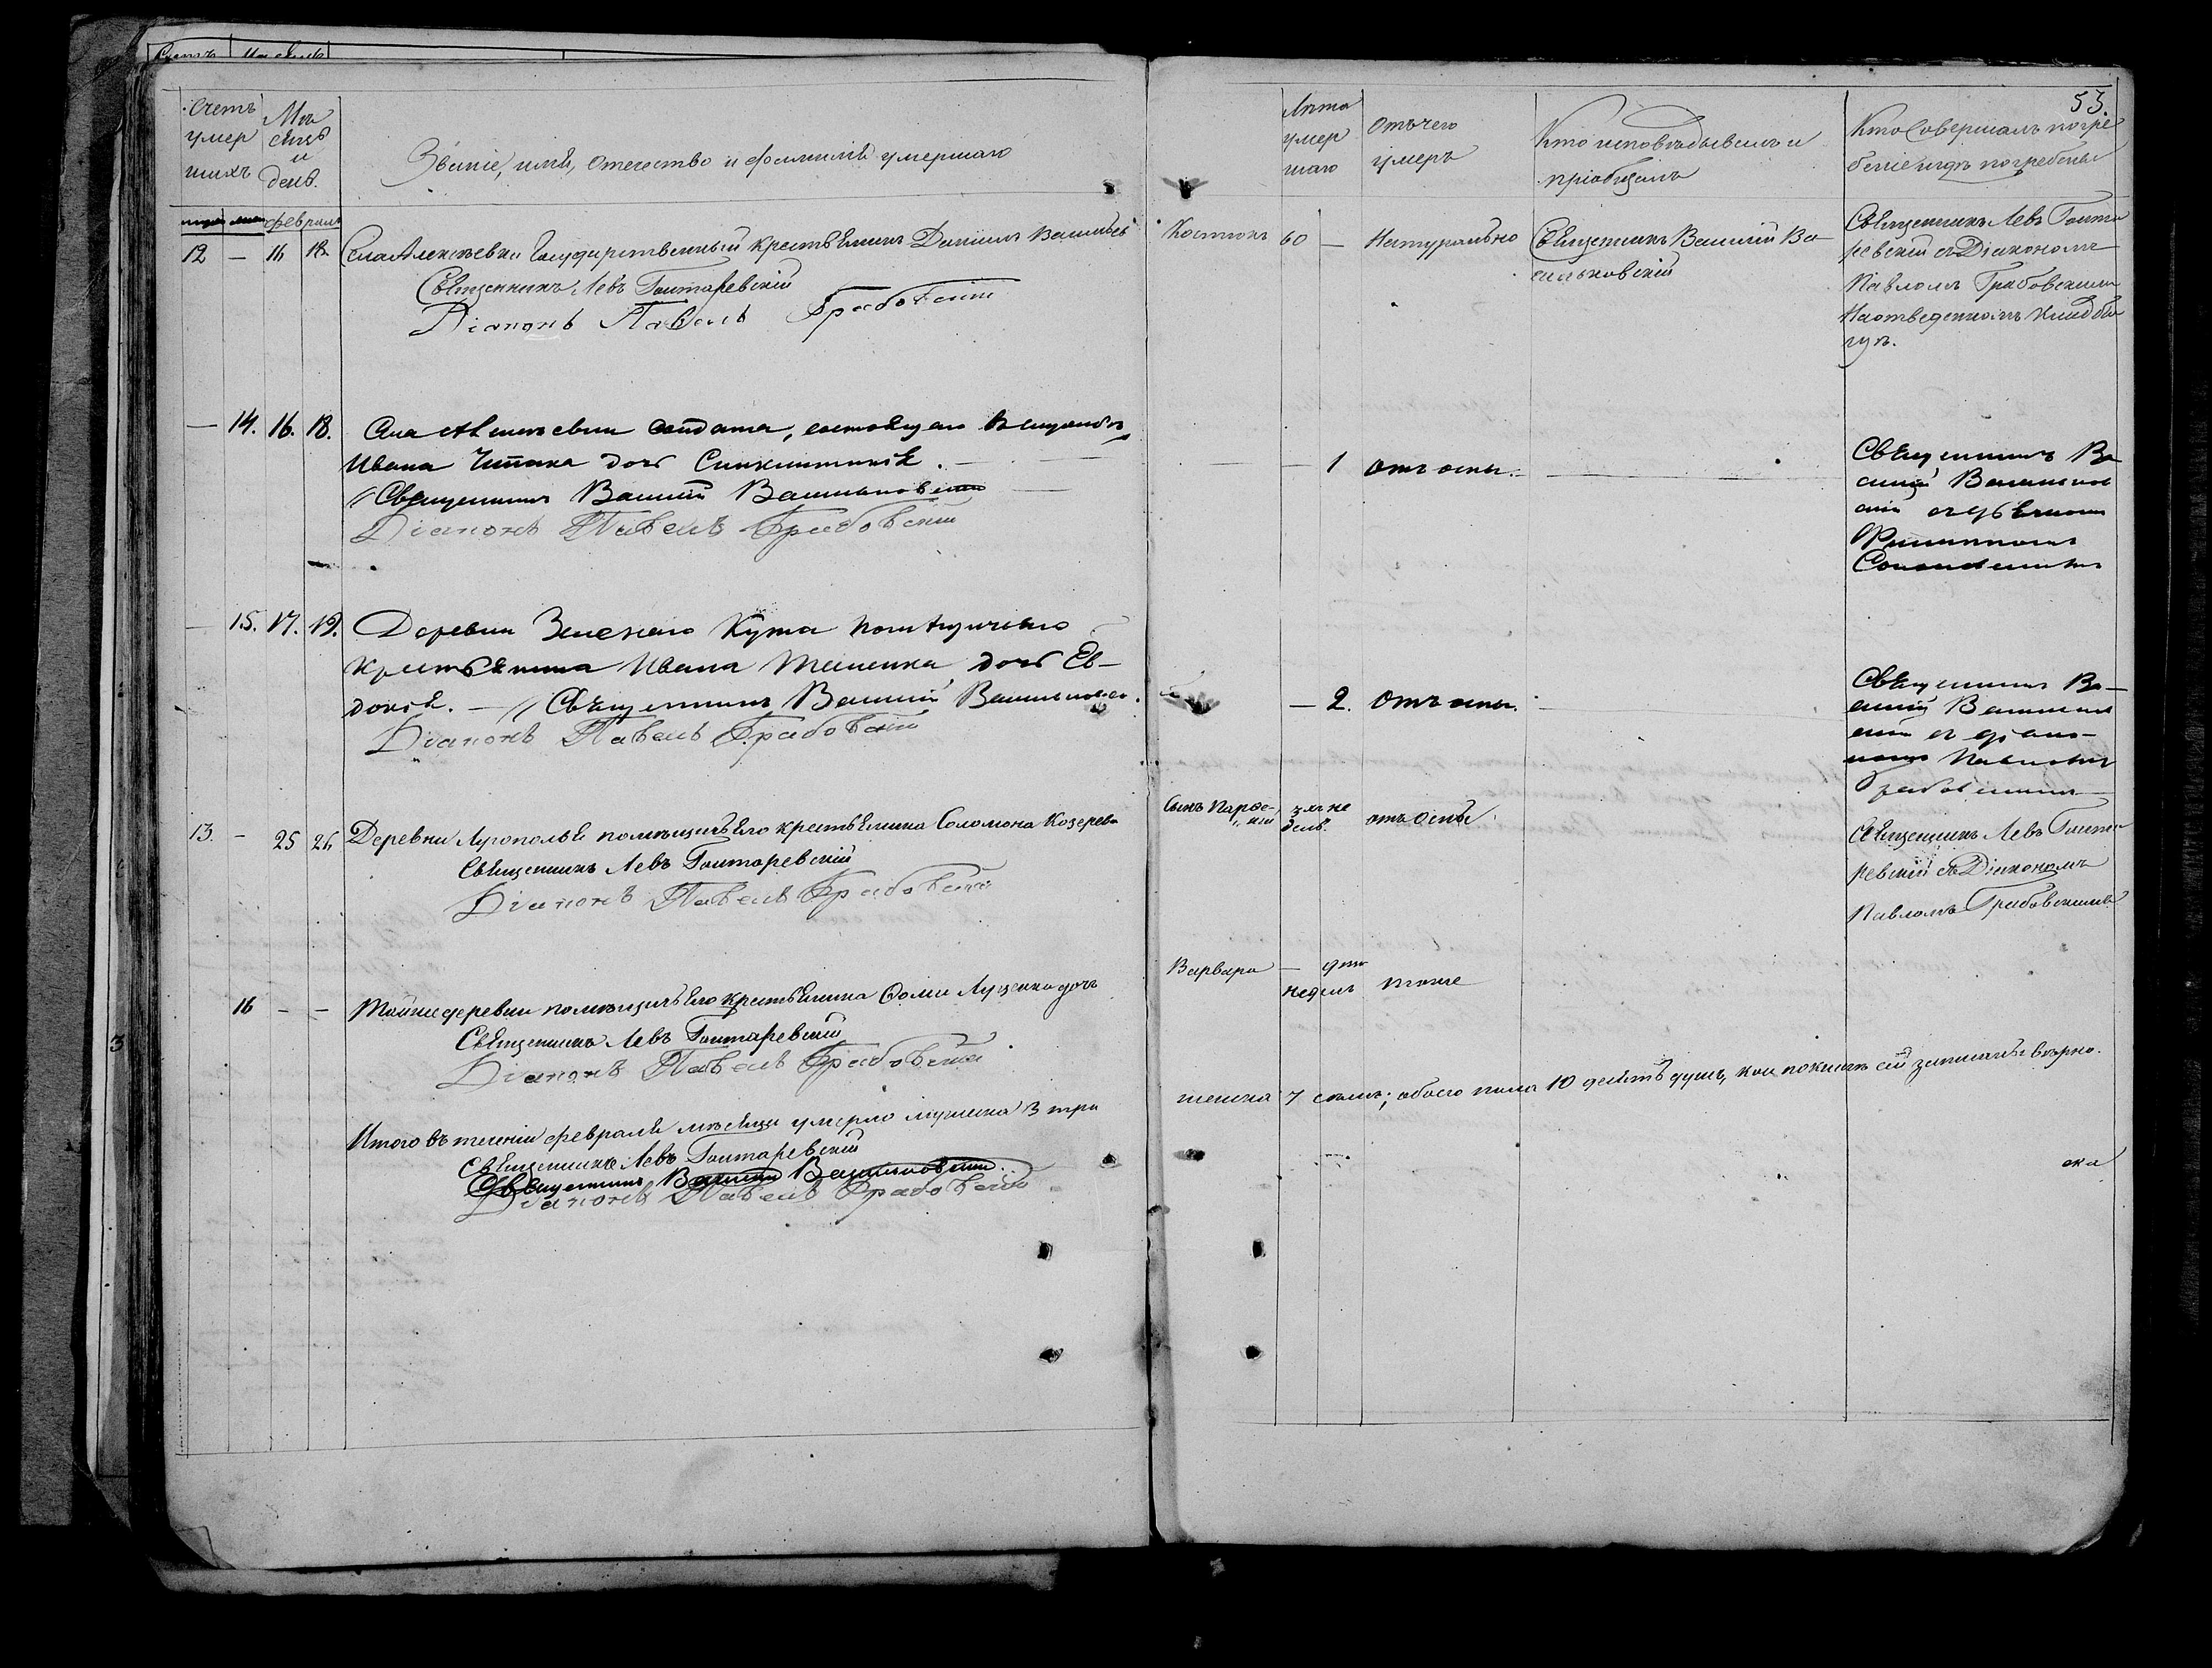 Счетъ
умер
шихъ
Мѣ
сяцъ
и
день.
Званіе, имя, отечество и фамилія умершаго
Лѣта
умер
шаго
Отъ чего
умеръ
Кто исповѣдывалъ и
пріобщалъ
53.
Кто совершалъ погре
беніе и гдѣ погребены
февраль
12 — 16 18 Села Алексѣевки Государственный крестьянинъ Даніилъ Васильевъ
Священникъ Левъ Гонтаревскій
Діаконъ Павелъ Грабовскій
Костюкъ 60 — Натурально
Священникъ Василій Ва-
сильковскій
Священникъ Левъ Гонта
ревскій съ Діакономъ
Павломъ Грабовскимъ
На отведенномъ кладби
щѣ.
— 14. 16. 18. Села Алексѣевки солдата, состоящаго в службѣ
Ивана дочь Синклитикія. —
Священникъ Василій Васильковскій
Діаконъ Павелъ Грабовскій
— 1 отъ оспы. —
Священникъ Ва
силій Васильков
скій съ дьячкомъ
Филиппомъ
— 15. 17. 19. Деревни Зеленаго Кута помѣщичьяго
крестьянина Ивана дочь Ев-
докія. — Священникъ Василій Васильковск.
Діаконъ Павелъ Грабовскій
— 2. отъ оспы.
Священникъ Ва-
силій Васильков
скій съ діако-
номъ Павломъ
Грабовскимъ
13. — 25 26 Деревни Лугополья помѣщичьяго крестьянина Соломона Козерева
Священникъ Левъ Гонтаревскій
Діаконъ Павелъ Грабовскій
Сынъ Парѳе-
ній
3 хъ не
дель.
отъ оспы.
Священникъ Левъ Гонта
ревскій съ Діакономъ
Павломъ Грабовскимъ
16 — — Той же деревни помѣщичьяго крестьянина Ѳомы Луценка дочь
Священникъ Левъ Гонтаревскій
Діаконъ Павелъ Грабовскій
Варвара —
недель
тоже
Итого въ теченіи февраля мѣсяца умерло мужеска 3 три
женска 7 семь; обоего пола 10 десять душъ, кои по книгѣ сей записаны вѣрно.
Священникъ Левъ Гонтаревскій
Священникъ Василій Васильковскій
Діаконъ Павелъ Грабовскій